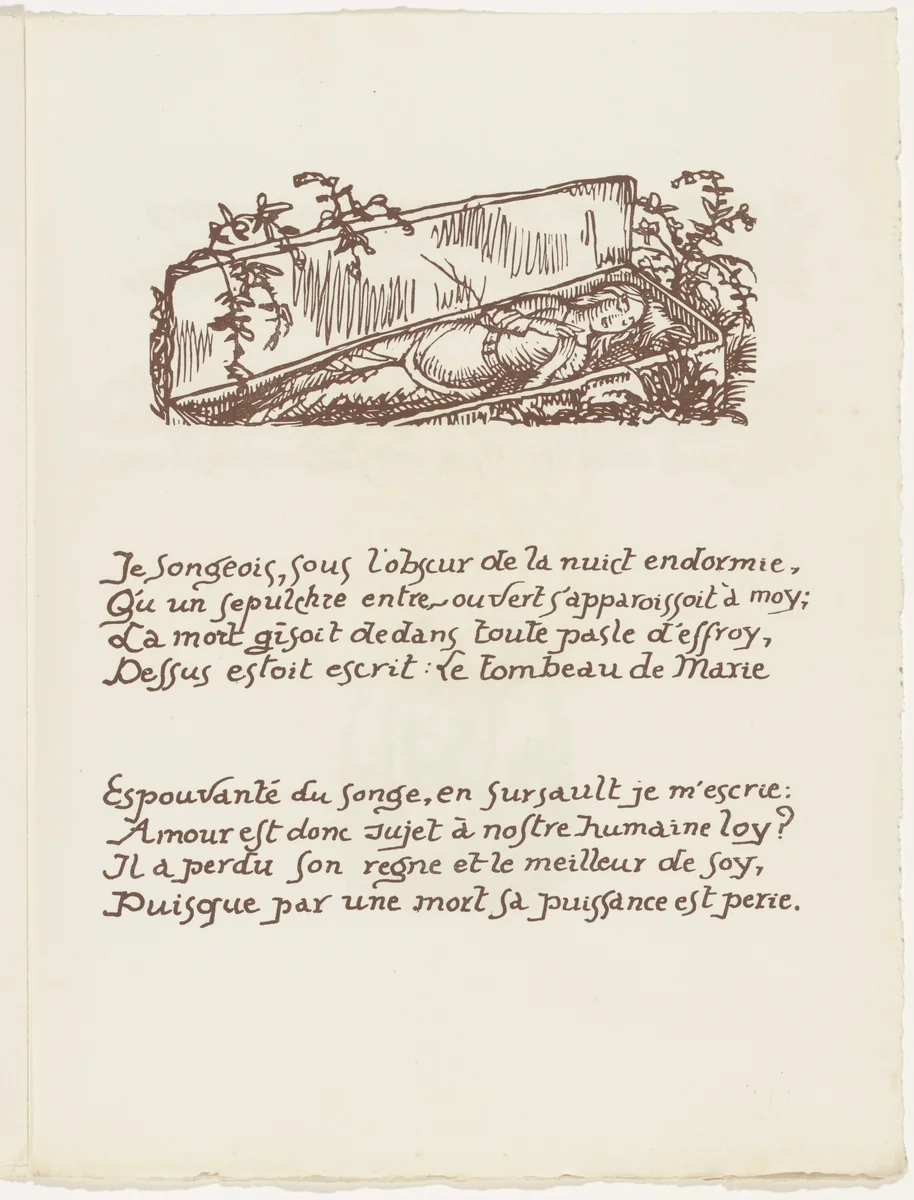 Je songeois, sous l'obscur de la nuict endormie,
Qu'un sepulchre entre-ouvert s'apparoissoit à moy;
La mort gisoit dedans toute pasle d'effroy,
Dessus estoit escrit: Le tombeau de Marie
Espouvanté du songe, en sursault je m'escrie:
Amour est donc sujet à nostre humaine loy?
Il a perdu son regne et le meilleur de soy,
Puisque par une mort sa puissance est perie.